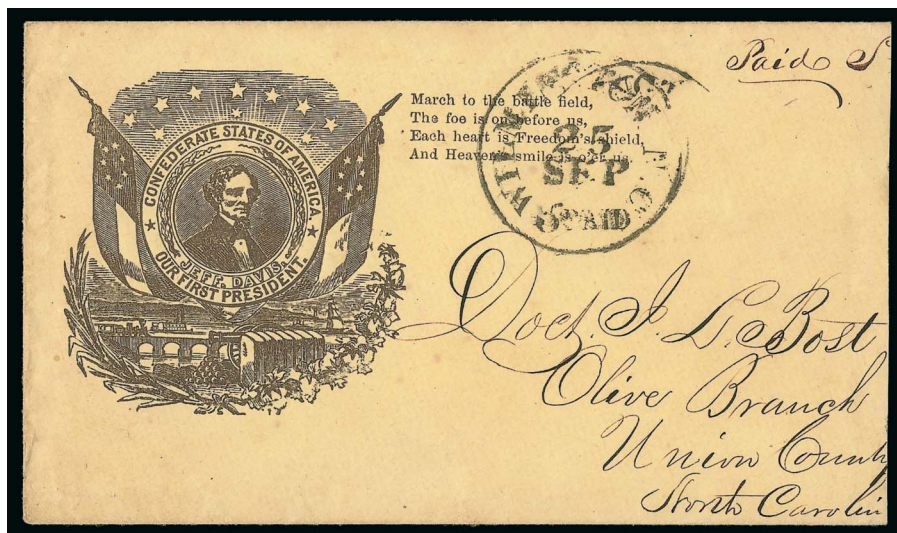 Paid 5
CONFEDERATE STATES OF AMERICA.
JEFF. DAVIS,
OUR FIRST PRESIDENT.
March to the battle field,
The foe is on before us,
Each heart is Freedom's shield,
And Heaven's smile is o'er us.
WILMINGTON N.C.
25
SEP
PAID
Doct. J. L. Bost
Olive Branch
Union County
North Carolin